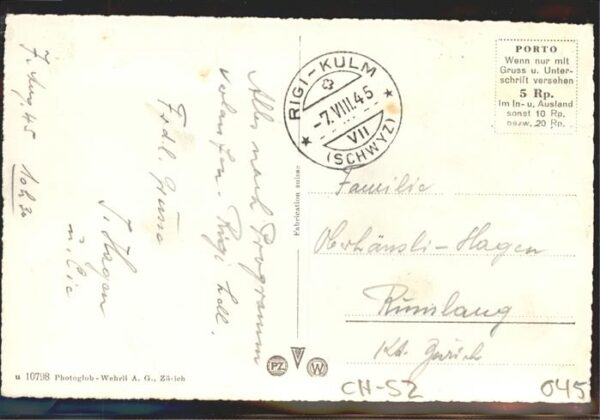 7. Aug. 45 10h 30
Alles nach Programm
Rigi hell.
Frdl. Grüsse
J. Hagen
u. Cie
Fabrication suisse
RIGI-KULM
-7.VIII.45
VII
(SCHWYZ)
PORTO
Wenn nur mit
Gruss u. Unter-
schrift versehen
5 Rp.
Im In- u. Ausland
sonst 10 Rp.
bezw. 20 Rp.
Familie
Oberhänsli-Hagen
Rümlang
Kt. Zürich
u 10798 Photoglob-Wehrli A. G., Zürich
PZ W
CH-52 045